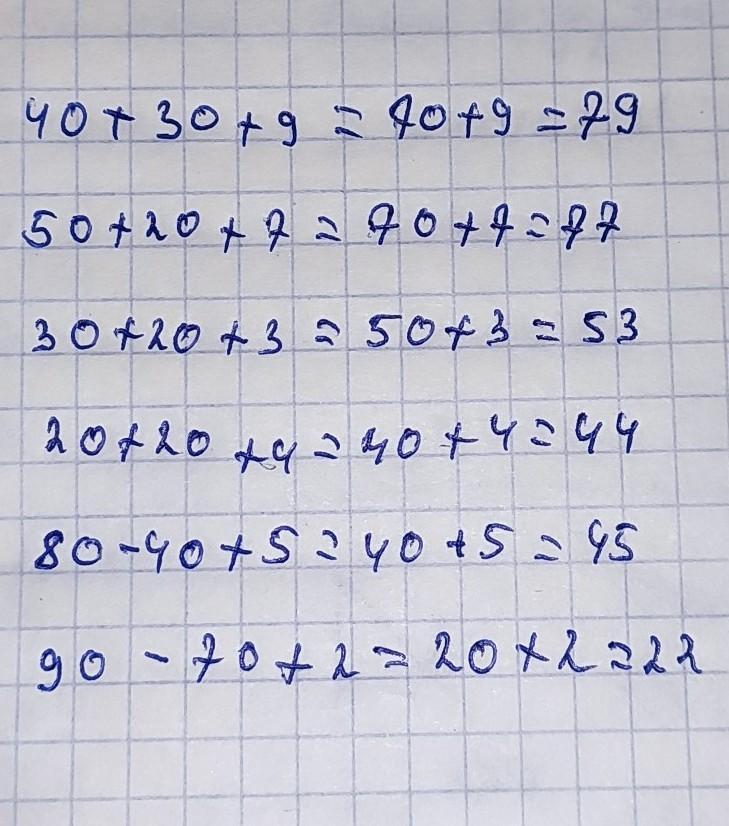 40 + 30 + 9 = 70 + 9 = 79
50 + 20 + 7 = 70 + 7 = 77
30 + 20 + 3 = 50 + 3 = 53
20 + 20 + 4 = 40 + 4 = 44
80 - 40 + 5 = 40 + 5 = 45
90 - 70 + 2 = 20 + 2 = 22